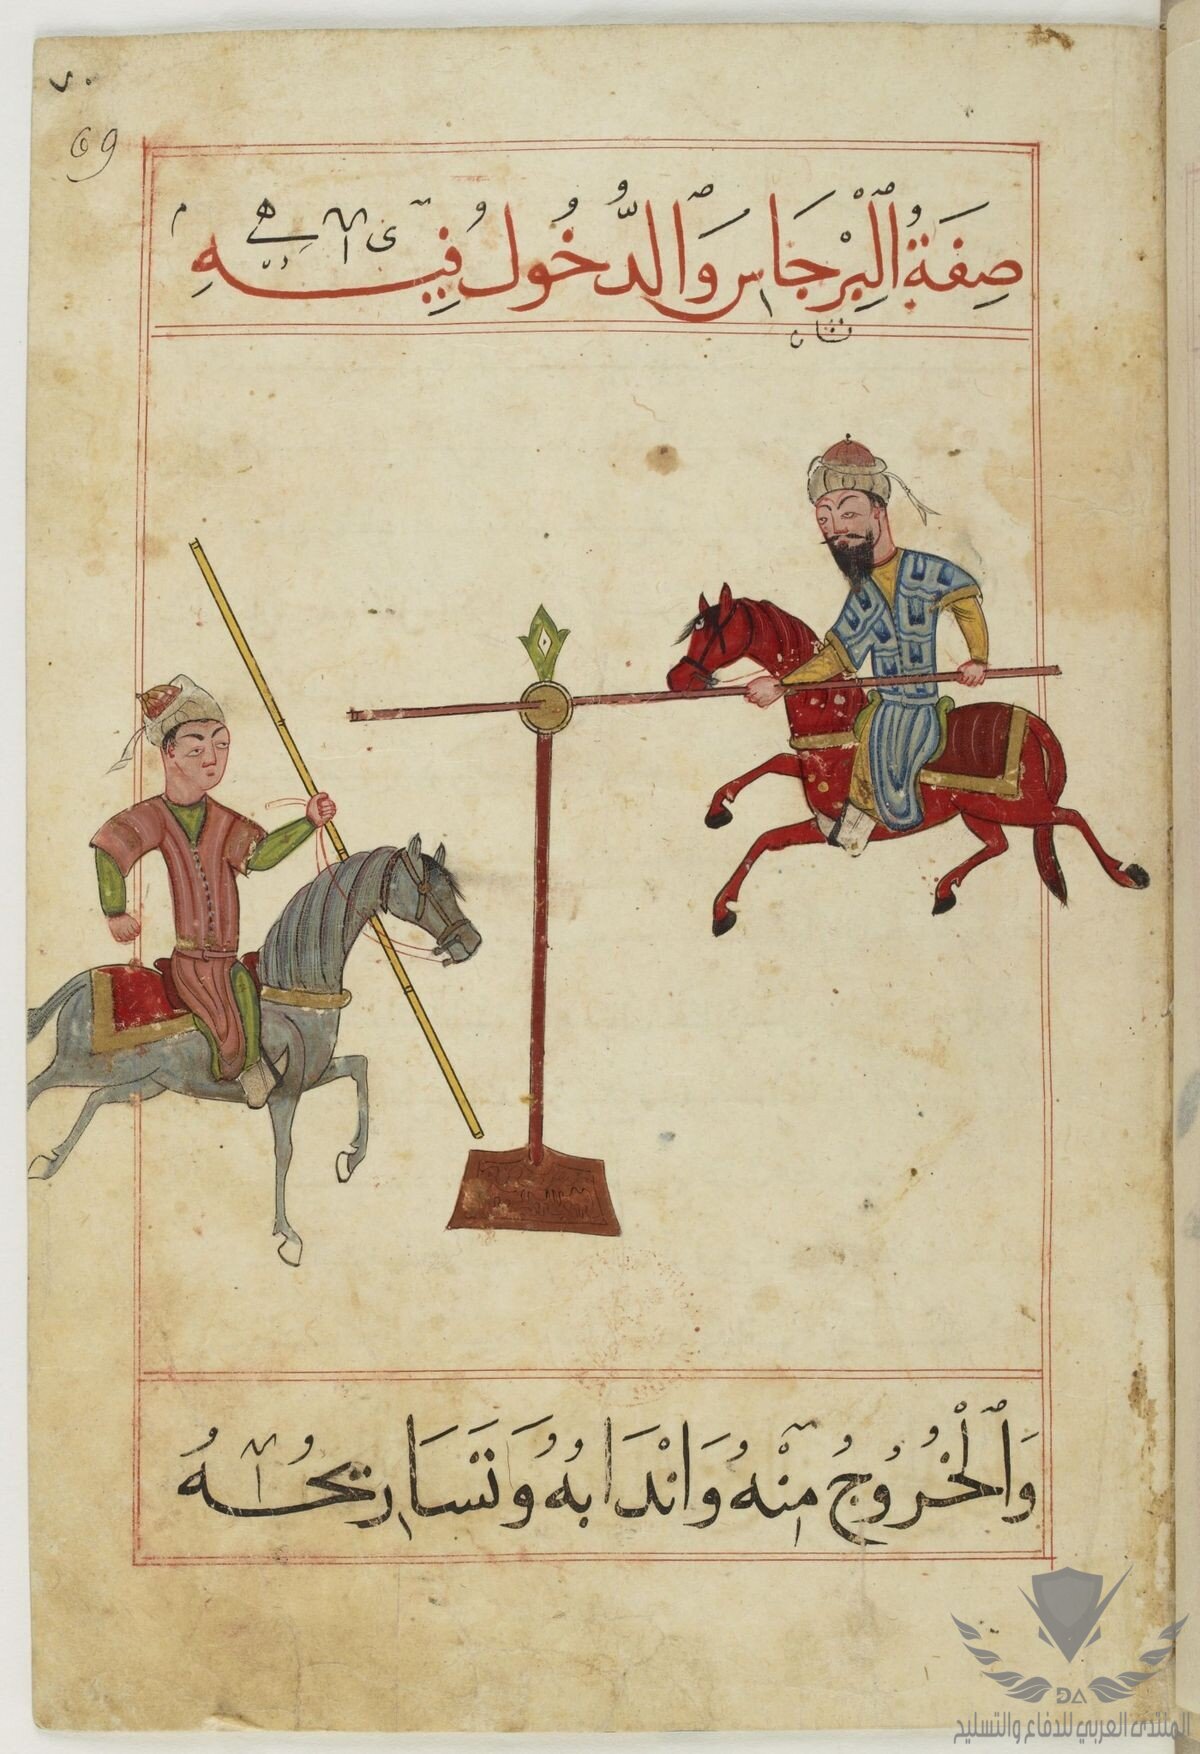 ٧٠
69
صِفَةُ ٱلْبِرْجَاسِ وَٱلدُّخُولُ فِيهِ
وَٱلْخُرُوجُ مِنْهُ وَانْدَابُهُ وَتَسَارِيحُهُ
DA
المنتدى العربي للدفاع والتسليح